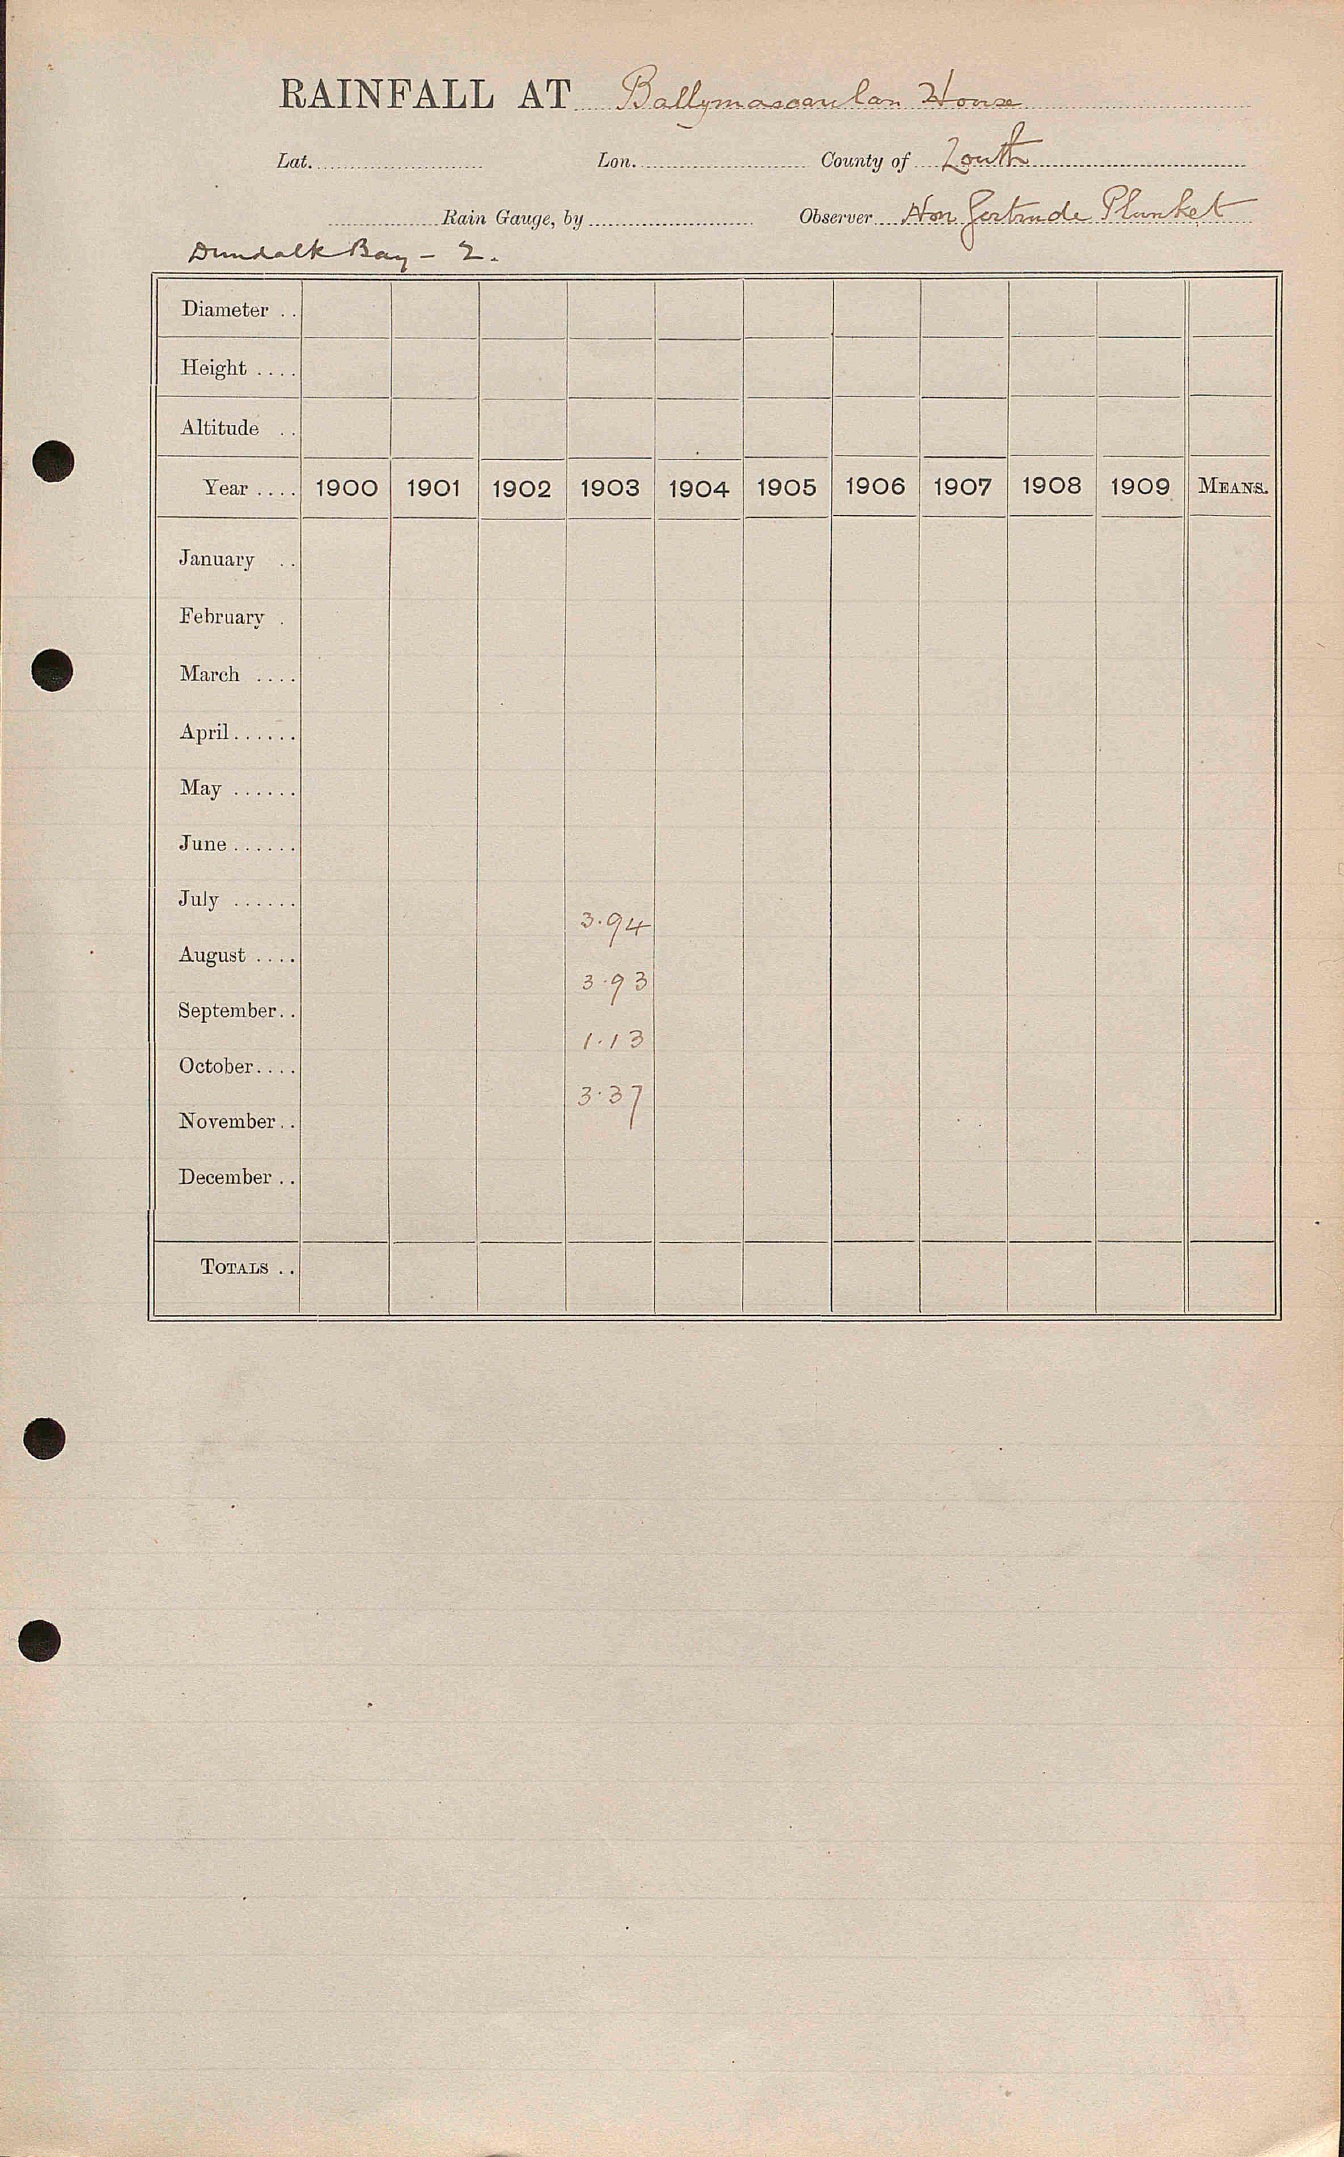 RAINFALL AT Ballymascanlan House
Lat. Lon. County of Louth
Rain Gauge, by Observer Hon Gertrude Plunket
Dundalk Bay - 2.
Diameter ..
Height ....
Altitude ..
Year .... 1900 1901 1902 1903 1904 1905 1906 1907 1908 1909 MEANS.
January ..
February .
March ....
April ......
May ......
June ......
July ......
3.94
August ....
3.93
September ..
1.13
October ....
3.37
November ..
December ..
TOTALS ..